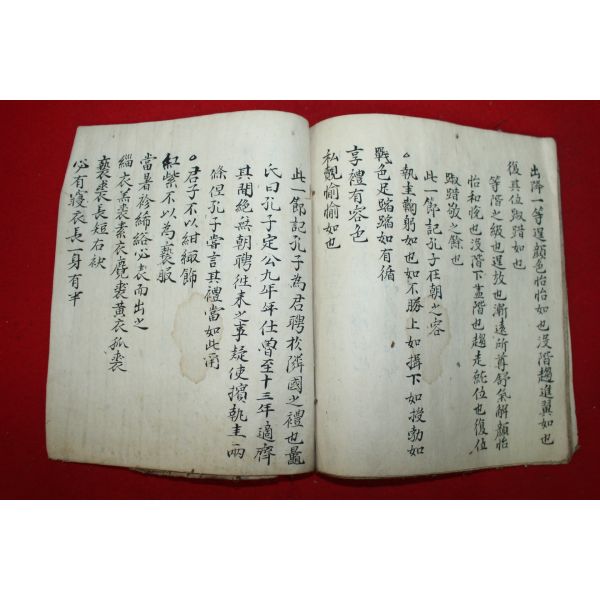 出降一等逞顏色怡怡如也沒階趨進翼如也
復其位踧踖如也
等階之級也逞放也漸遠所尊舒氣解顏怡
怡和悅也沒階下盡階也趨走就位也復位
踧踖敬之餘也
此一節記孔子在朝之容
○執圭鞠躬如也如不勝上如揖下如授勃如
戰色足蹜蹜如有循
享禮有容色
私覿愉愉如也
此一節記孔子為君聘於隣國之禮也鼂
氏曰孔子定公九年年仕魯至十三年適齊
其間絶無朝聘徃来之事疑使擯執圭兩
條但孔子嘗言其禮當如此甭
○君子不以紺緅飾
紅紫不以為褻服
當暑袗絺綌必表而出之
緇衣羔裘素衣麑裘黃衣狐裘
褻裘長短右袂
必有寢衣長一身有半